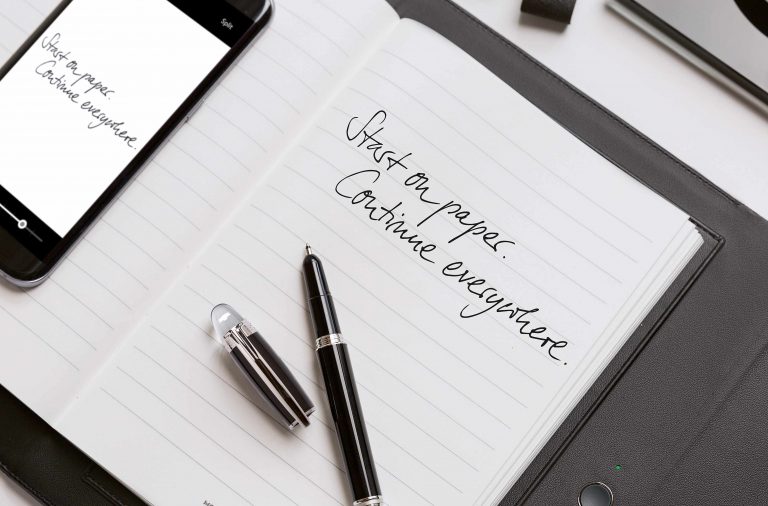 Split
Start on paper.
Continue everywhere.
Start on paper.
Continue everywhere.